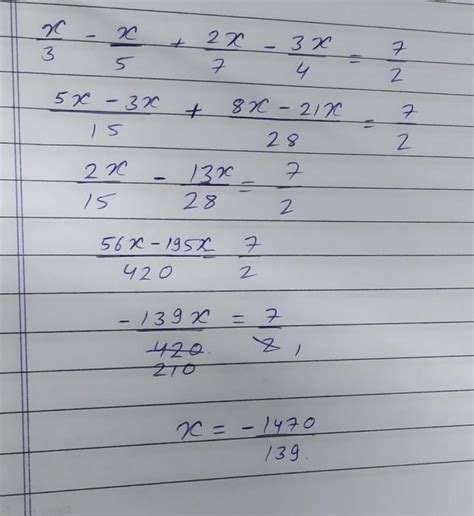 x/3 - x/5 + 2x/7 - 3x/4 = 7/2
(5x - 3x)/15 + (8x - 21x)/28 = 7/2
2x/15 - 13x/28 = 7/2
(56x - 195x)/420 = 7/2
-139x/420 210 = 7/2,
x = -1470/139